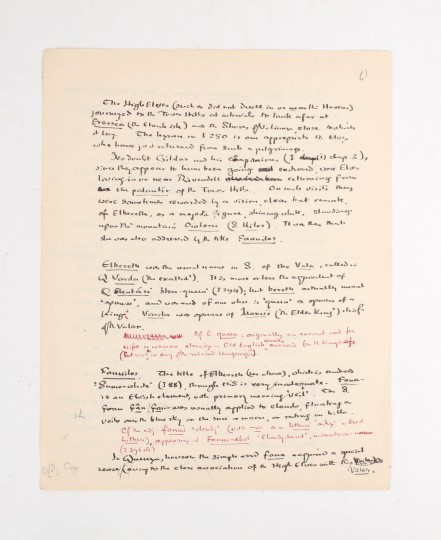 6)
The High Elves (such as did not dwell in or near the Havens)
journeyed to the Tower Hills at intervals to look afar at
Eressëa (the Elvish isle) and the Shores of Valinor, close to which
it lay. The hymn in I 250 is one appropriate to Elves
who have just returned from such a pilgrimage.
No doubt Gildor and his companions (I chap 3),
since they appear to have been going eastward, were Elves
living in or near Rivendell returning from
the palantír of the Tower Hills. On such visits they
were sometimes rewarded by a vision, clear but remote,
of Elbereth, as a majestic figure, shining white, standing
upon the mountain Oiolossë (S Uilos). It was then that
she was also addressed by the title Fanuilos.
Elbereth was the usual name in S. of the Vala, called in
Q Varda (the exalted). It is more or less the equivalent of
Q Elentári 'Star-queen' (I 394); but bereth actually meant
'spouse', and was used of one who is 'queen' as spouse of a
king. Varda was spouse of Manwë (the Elder King) chief
of the Valar.
Cf. E queen: originally an ancient word for
wife or woman, already in Old English reserved for the King's wife
(but not in any of the related languages).
Fanuilos. This title of Elbereth (see above), which is rendered
'Snow-white' (I 88), though this is very inadequate. Fana-
is an Elvish element, with primary meaning 'veil'. The S.
form fân, fan- was usually applied to clouds, floating as
veils over the blue sky or the sun or moon, or resting on hills.
Cf. the adj fanui 'cloudy' (with -ui as in lithui 'ashy' in Ered
Lithui), appearing in Fanui-dhol 'Cloudyhead',
(I 296 etc)
In Quenya, however, the simple word fana acquired a special
sense (owing to the close association of the High Elves with
Valar.